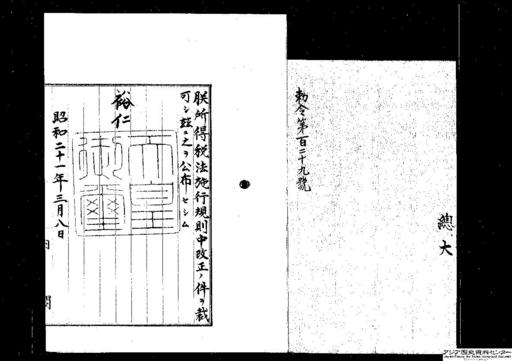 總大
勅令第百二十九號
朕所得税法施行規則中改正ノ件ヲ裁
可シ茲ニ之ヲ公布セシム
裕仁
天皇
御璽
昭和二十一年三月八日
内閣
アジア歴史資料センター